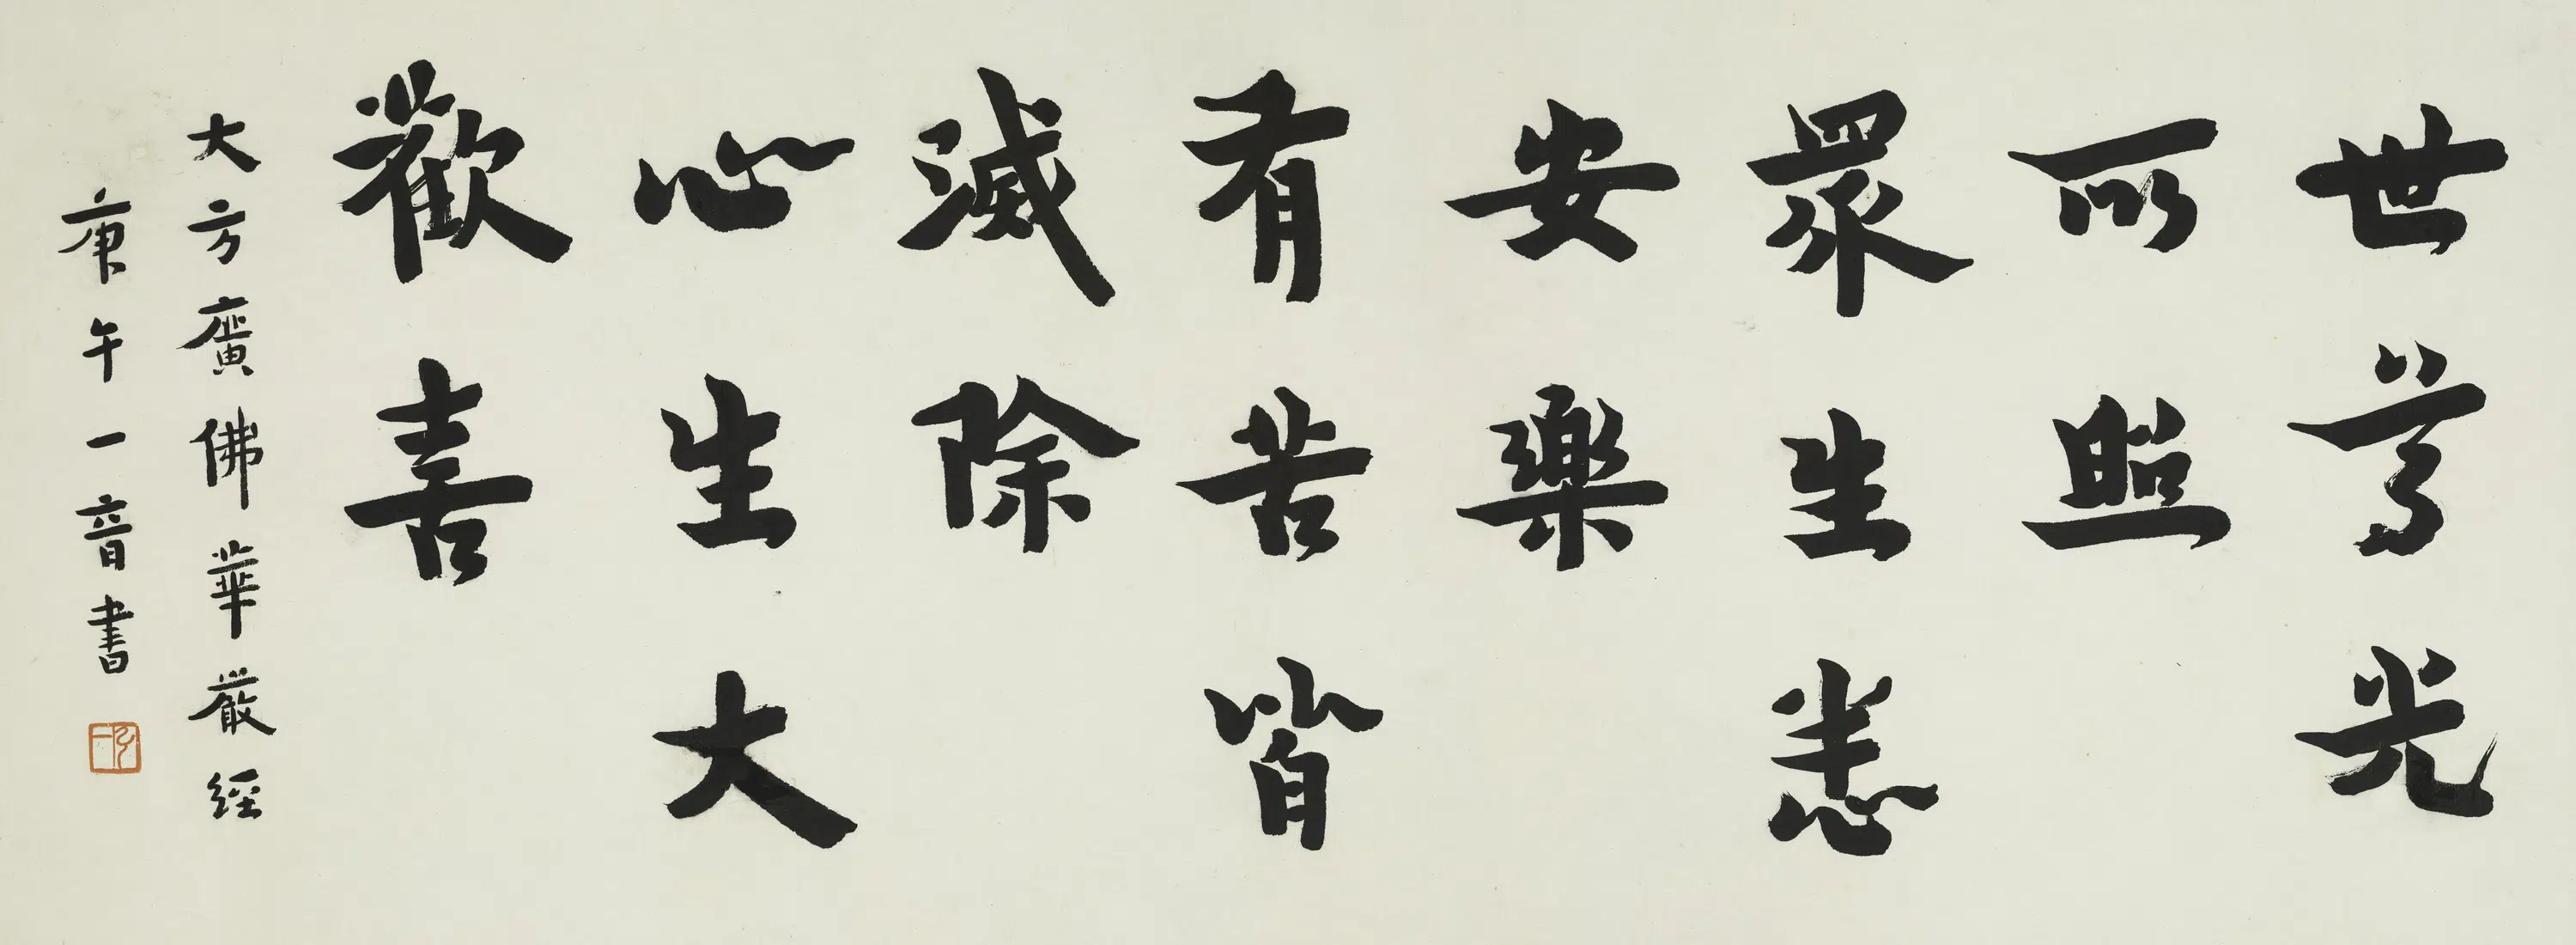 世尊光
所照
眾生悉
安樂
有苦皆
滅除
心生大
歡喜
大方廣佛華嚴經
庚午一音書
弘一